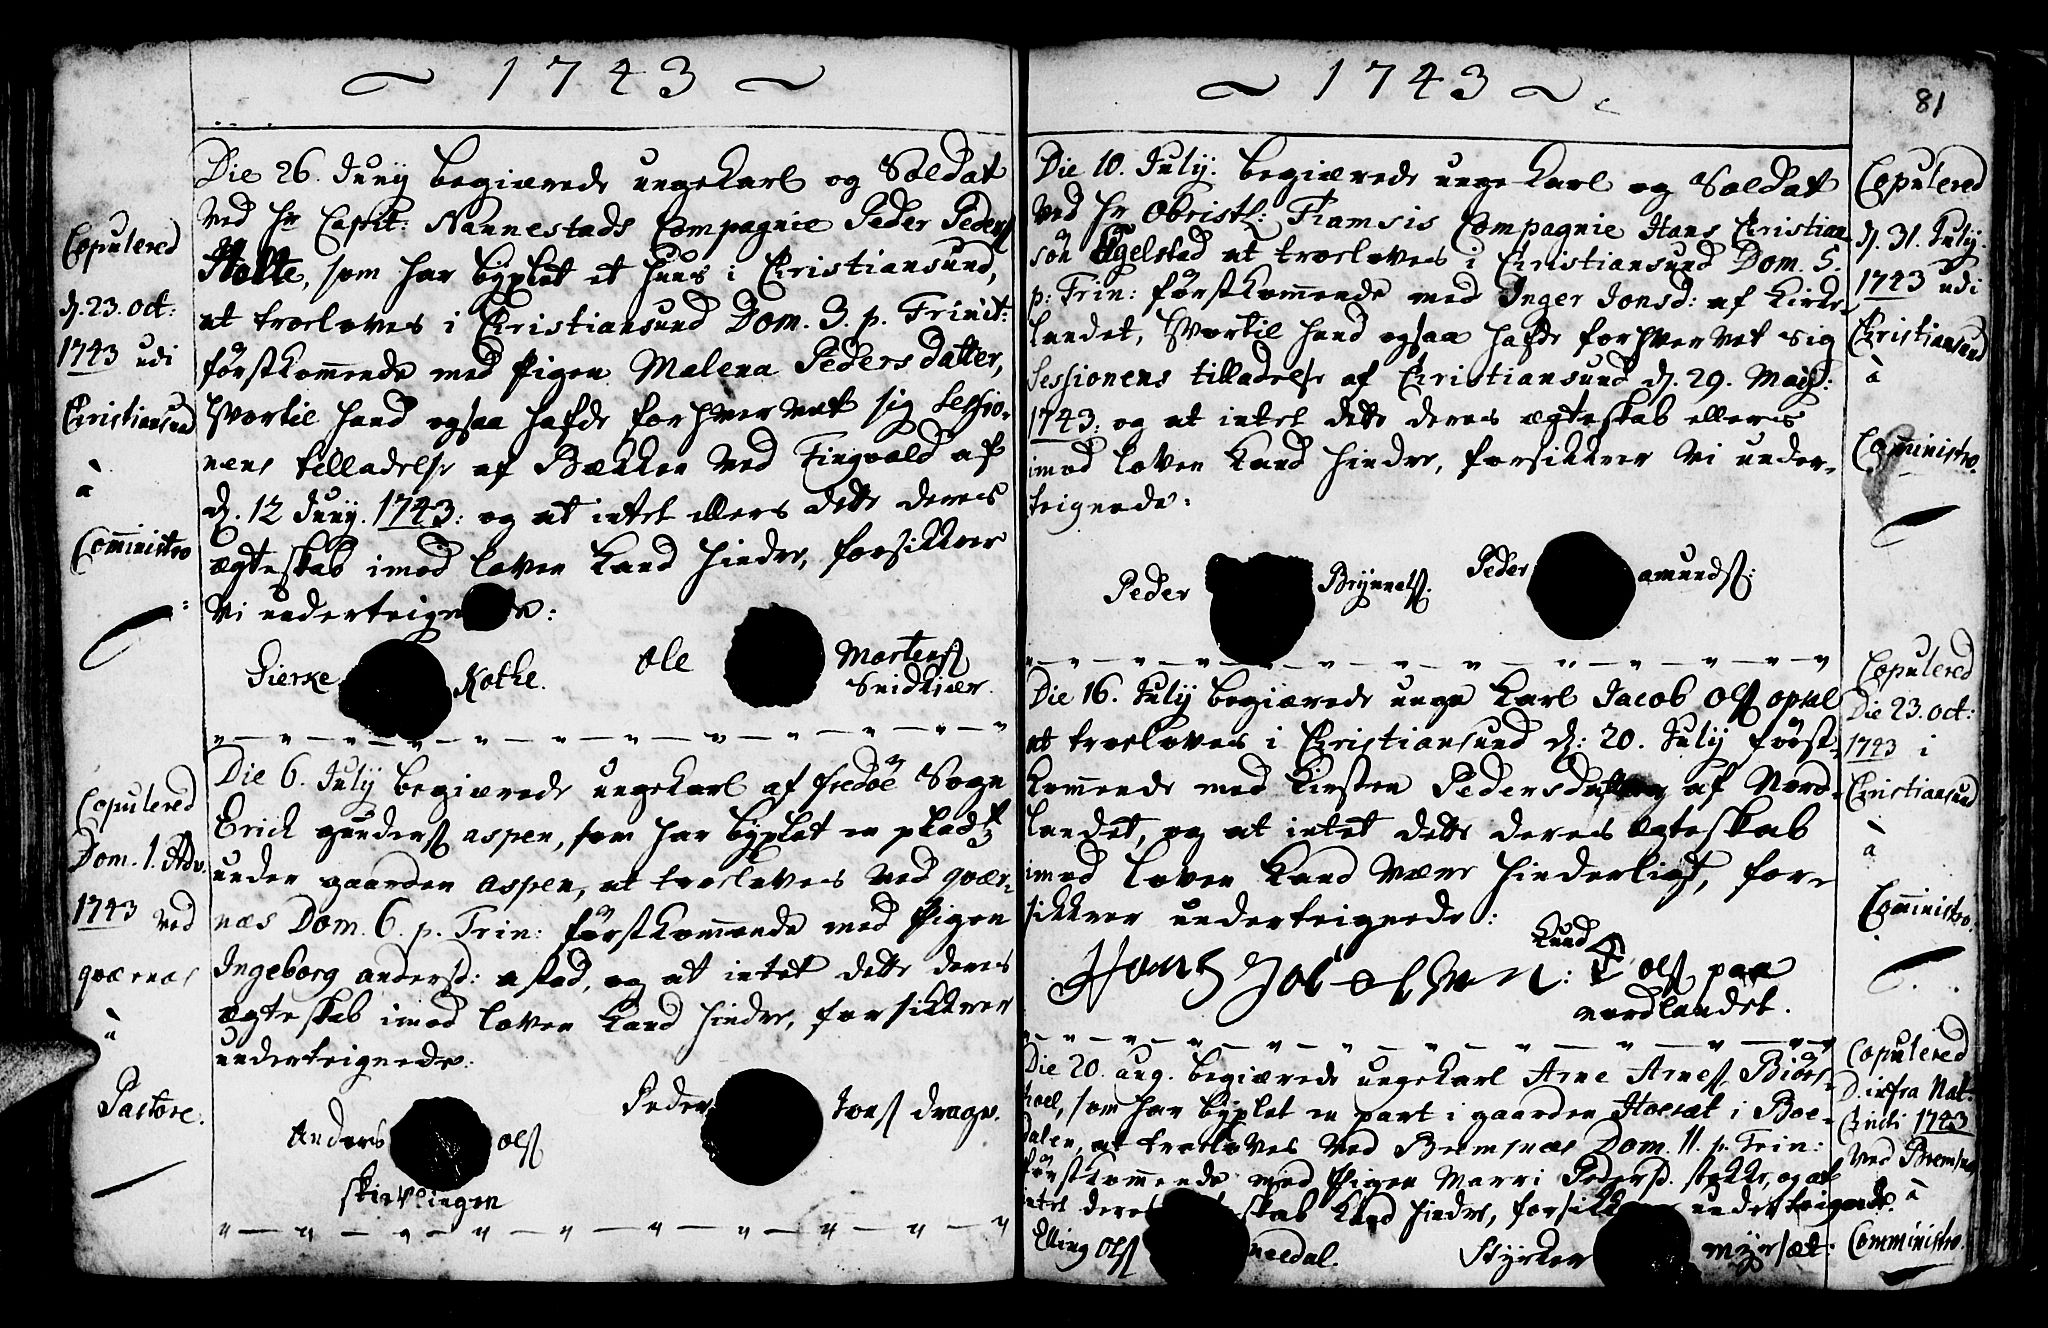 ~ 1743 ~
Copulered
d. 23. Oct:
1743 udi
Christiansund
à
Cõministro
Die 26. Junij begiærede ungekarl og Soldat
ved hr Capit: Nannestads Compagnie Peder Peders
Holte, som har byxlet et huus i Christiansund,
at troeloves i Christiansund Dom. 3. p. Trinit:
förstkom̃ende med Pigen Malena Pedersdatter,
hvortil hand ogsaa hafde forhvervet sig Sessio-
nens tilladelse af Bækken ved Tingvold af
d. 12 Junij. 1743: og at intet ellers dette deres
ægteskab imod loven kand hindre, forsikkrer
vi underteignede:
Gierke Kothe. Ole Mortens
Snidkier.
Copulered
Dom. 1. Adv.
1743 ved
qværnæs
à
Pastore.
Die 6. Julij begiærede ungekarl af fredöe Sogn
Erick gunders aspen, som har byxlet en plads
under gaarden aspen, at troeloves ved qvær-
næs Dom. 6. p. Trin: förstkom̃ende med Pigen
Ingeborg andersd: astad, og at intet dette deres
ægteskab imod loven kand hindre, forsikkrer
underteignede:
Anders Ols
skirvlingen
Peder Jons drage.
~ 1743 ~
81
Die 10. Julij: begiærede unge karl og Soldat
ved hr Obristl: Ramsis Compagnie Hans Christian
sön Egelstad at troeloves i Christiansund Dom. 5.
p: Trin: förstkom̃ende med Inger Jonsd: af Kirke-
landet, hvortil hand ogsaa hafde forhvervet sig
Sessionens tilladelse af Christiansund d. 29. Maij:
1743: og at intet dette deres ægteskab ellers
imod loven kand hindre, forsikkrer vi under-
teignede:
Peder Brynnels. Peder amunds:
Copulered
d. 31. Julij
1743 udi
Christiansund
à
Cõministro.
Die 16. Julij begiærede unge karl Jacob Ols opdal
at troeloves i Christiansund d: 20. Julij först-
kom̃ende med Kirsten Pedersdatter af Nord-
landet, og at intet dette deres ægteskab
imod loven kand være hinderligt, for-
sikkrer underteignede:
Knud Ols paa
nordlandet.
Copulered
Die 23. Oct:
1743 i
Christiansund
à
Cõministro.
Die 20. aug. begiærede ungekarl Arne Arnes Biöes-
som har byxlet en part i gaarden Holsæt i Boe-
dalen, at troeloves ved Bremsnæs Dom. 11. p. Trin:
förstkom̃ende med Pigen Marri Pedersd. stokke, og at
intet deres skab kand hindre, forsikkrer underteignede.
Elling Ols needal. Styrker myrsæt:
Copulered
D. infra Nat:
Christi 1743
ved Bremsnæs
à
Comministro.